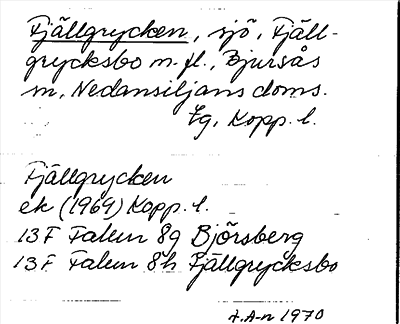 Fjällgrycken, sjö, Fjäll-
grycksbo m.fl., Bjursås
m, Nedansiljans doms.
tg, Kopp. l.
Fjällgrycken
ek (1969) Kopp. l.
13F Falun 8g Björsberg
13F Falun 8h Fjällgrycksbo
f.A-n 1970